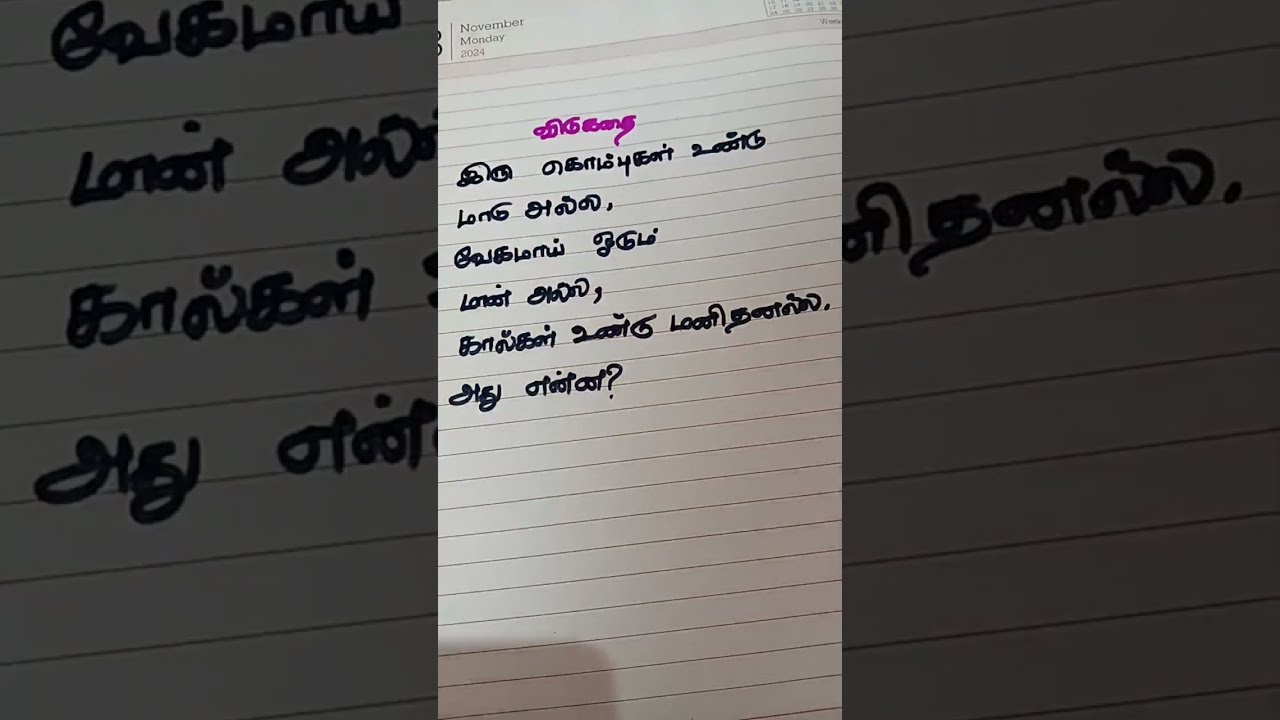 November
Monday
2024
விடுகதை
இரு கொம்புகள் உண்டு
மாடு அல்ல,
வேகமாய் ஓடும்
மான் அல்ல,
கால்கள் உண்டு மனிதனல்ல.
அது என்ன?